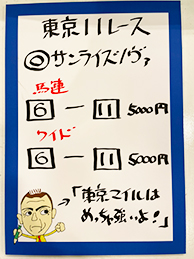 東京11レース
◎サンライズノヴァ
馬連
6 ー 11 5000円
ワイド
6 ー 11 5000円
→「東京マイルは
めっちゃ強いよ!」